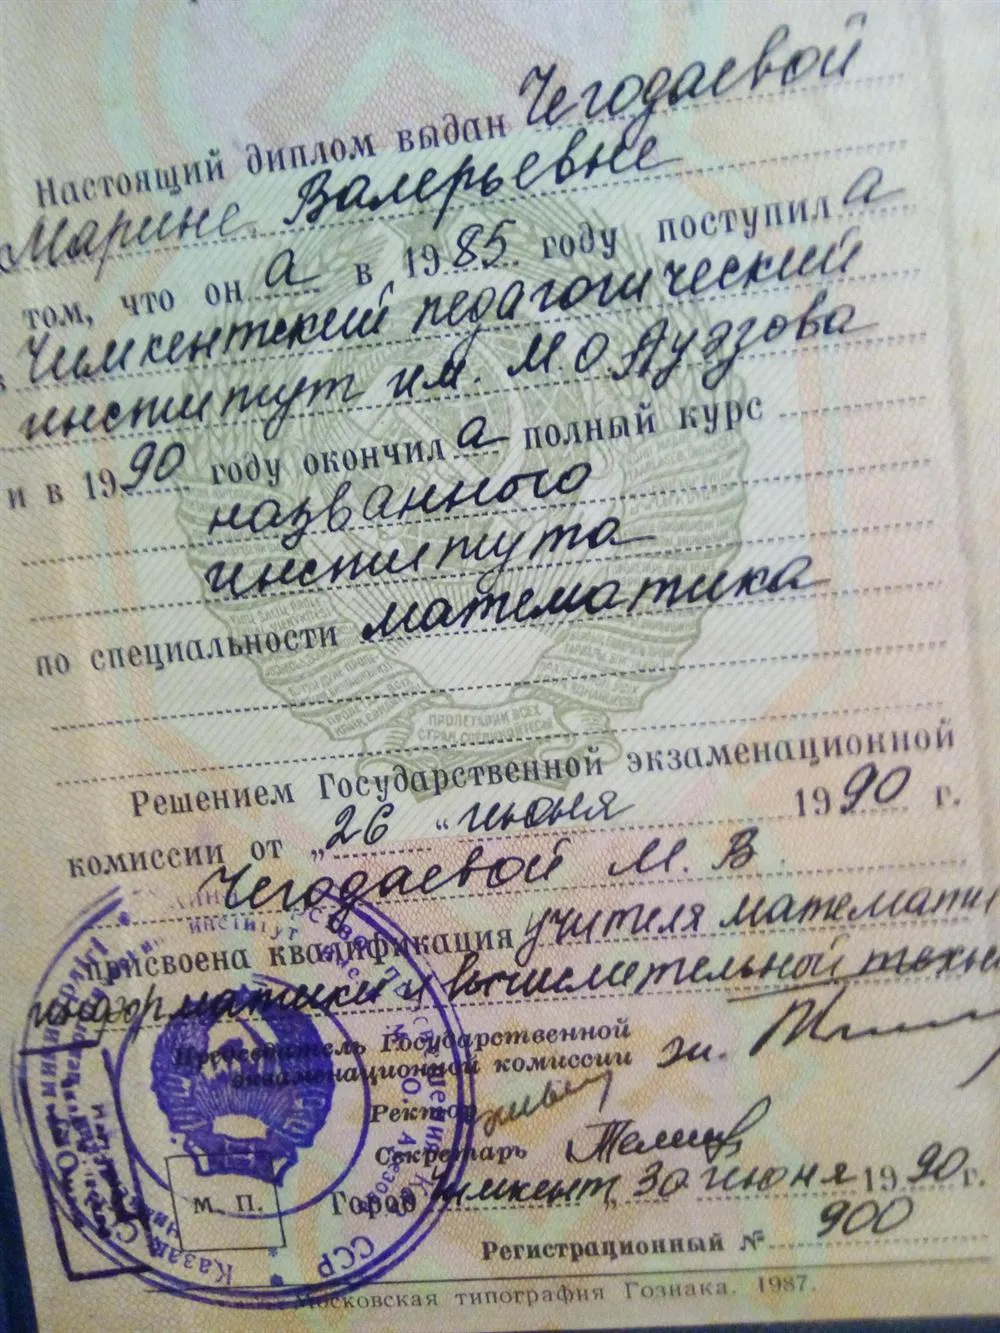 Настоящий диплом выдан Чегодаевой
Марине Валерьевне
том, что он а в 1985 году поступил а
в Чимкентский педагогический
институт им. М.О.Ауэзова
и в 1990 году окончил а полный курс
названного
института
по специальности математика
ПРОЛЕТАРИИ ВСЕХ
СТРАН, СОЕДИНЯЙТЕСЬ!
Решением Государственной экзаменационной
комиссии от „26 “ июня 1990 г.
Чегодаевой М. В.
присвоена квалификация учителя математи
информатики и вычислительной техни
Председатель Государственной
экзаменационной комиссии
Ректор
Секретарь
Город Чимкент, 30 июня 1990 г.
М. П.
Регистрационный № 900
Московская типография Гознака. 1987.